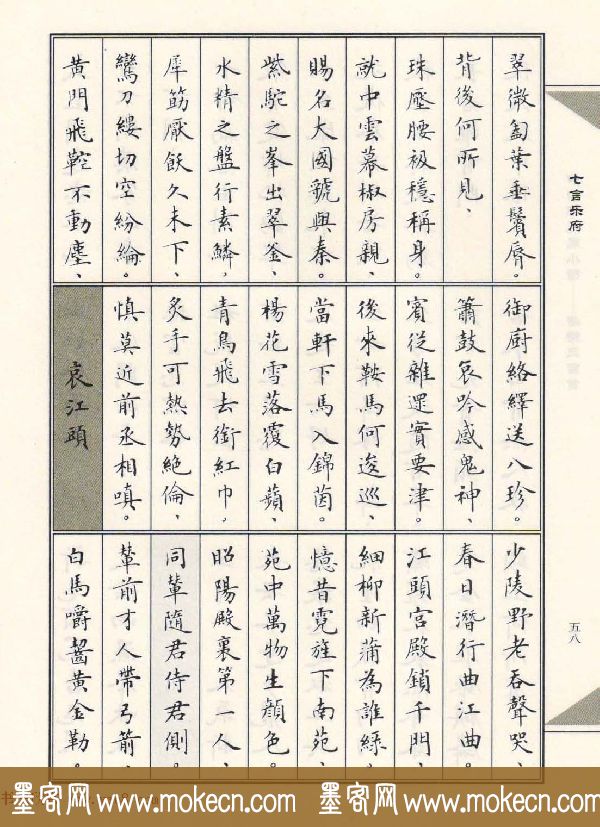 七言乐府
翠微㔩葉垂鬢脣。
背後何所見、
珠壓腰衱穩稱身。
就中雲幕椒房親、
賜名大國虢與秦。
紫駝之峯出翠釜、
水精之盤行素鱗
犀筯厭飫久未下、
鸞刀縷切空紛綸。
黄門飛鞚不動塵、
御廚絡繹送八珍。
簫鼓哀吟感鬼神、
賓從雜遝實要津。
後來鞍馬何逡巡、
當軒下馬入錦茵。
楊花雪落覆白蘋、
青鳥飛去銜紅巾、
炙手可熱勢絕倫、
慎莫近前丞相嗔。
哀江頭
少陵野老吞聲哭、
春日潛行曲江曲。
江頭宮殿鎖千門、
細柳新蒲為誰綠。
憶昔霓旌下南苑、
苑中萬物生顏色。
昭陽殿裏第一人、
同輦隨君侍君側。
輦前才人帶弓箭、
白馬嚼齧黄金勒。
五八
墨客网 www.mokecn.com 墨客网 www.mokecn.com